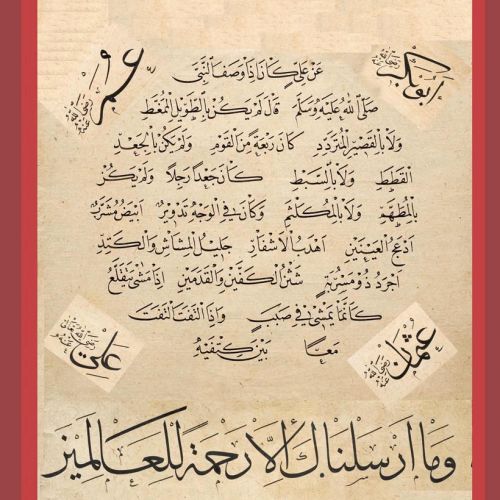 ابو بكر رضي الله عنه
عمر رضي الله عنه
عن علي كان اذا وصف النبي
صلى الله عليه وسلم قال لم يكن بالطويل الممغط
ولا بالقصير المتردد كان ربعة من القوم ولم يكن بالجعد
القطط ولا بالسبط كان جعدا رجلا ولم يكن
بالمطهم ولا بالمكلثم وكان في الوجه تدوير ابيض مشرب
ادعج العينين اهدب الاشفار جليل المشاش والكتد
اجرد ذو مسربة شثن الكفين والقدمين اذا مشى يتقلع
كانما يمشي في صبب واذا التفت التفت
معا بين كتفيه
عثمان رضي الله عنه
علي رضي الله عنه
وما ارسلناك الا رحمة للعالمين